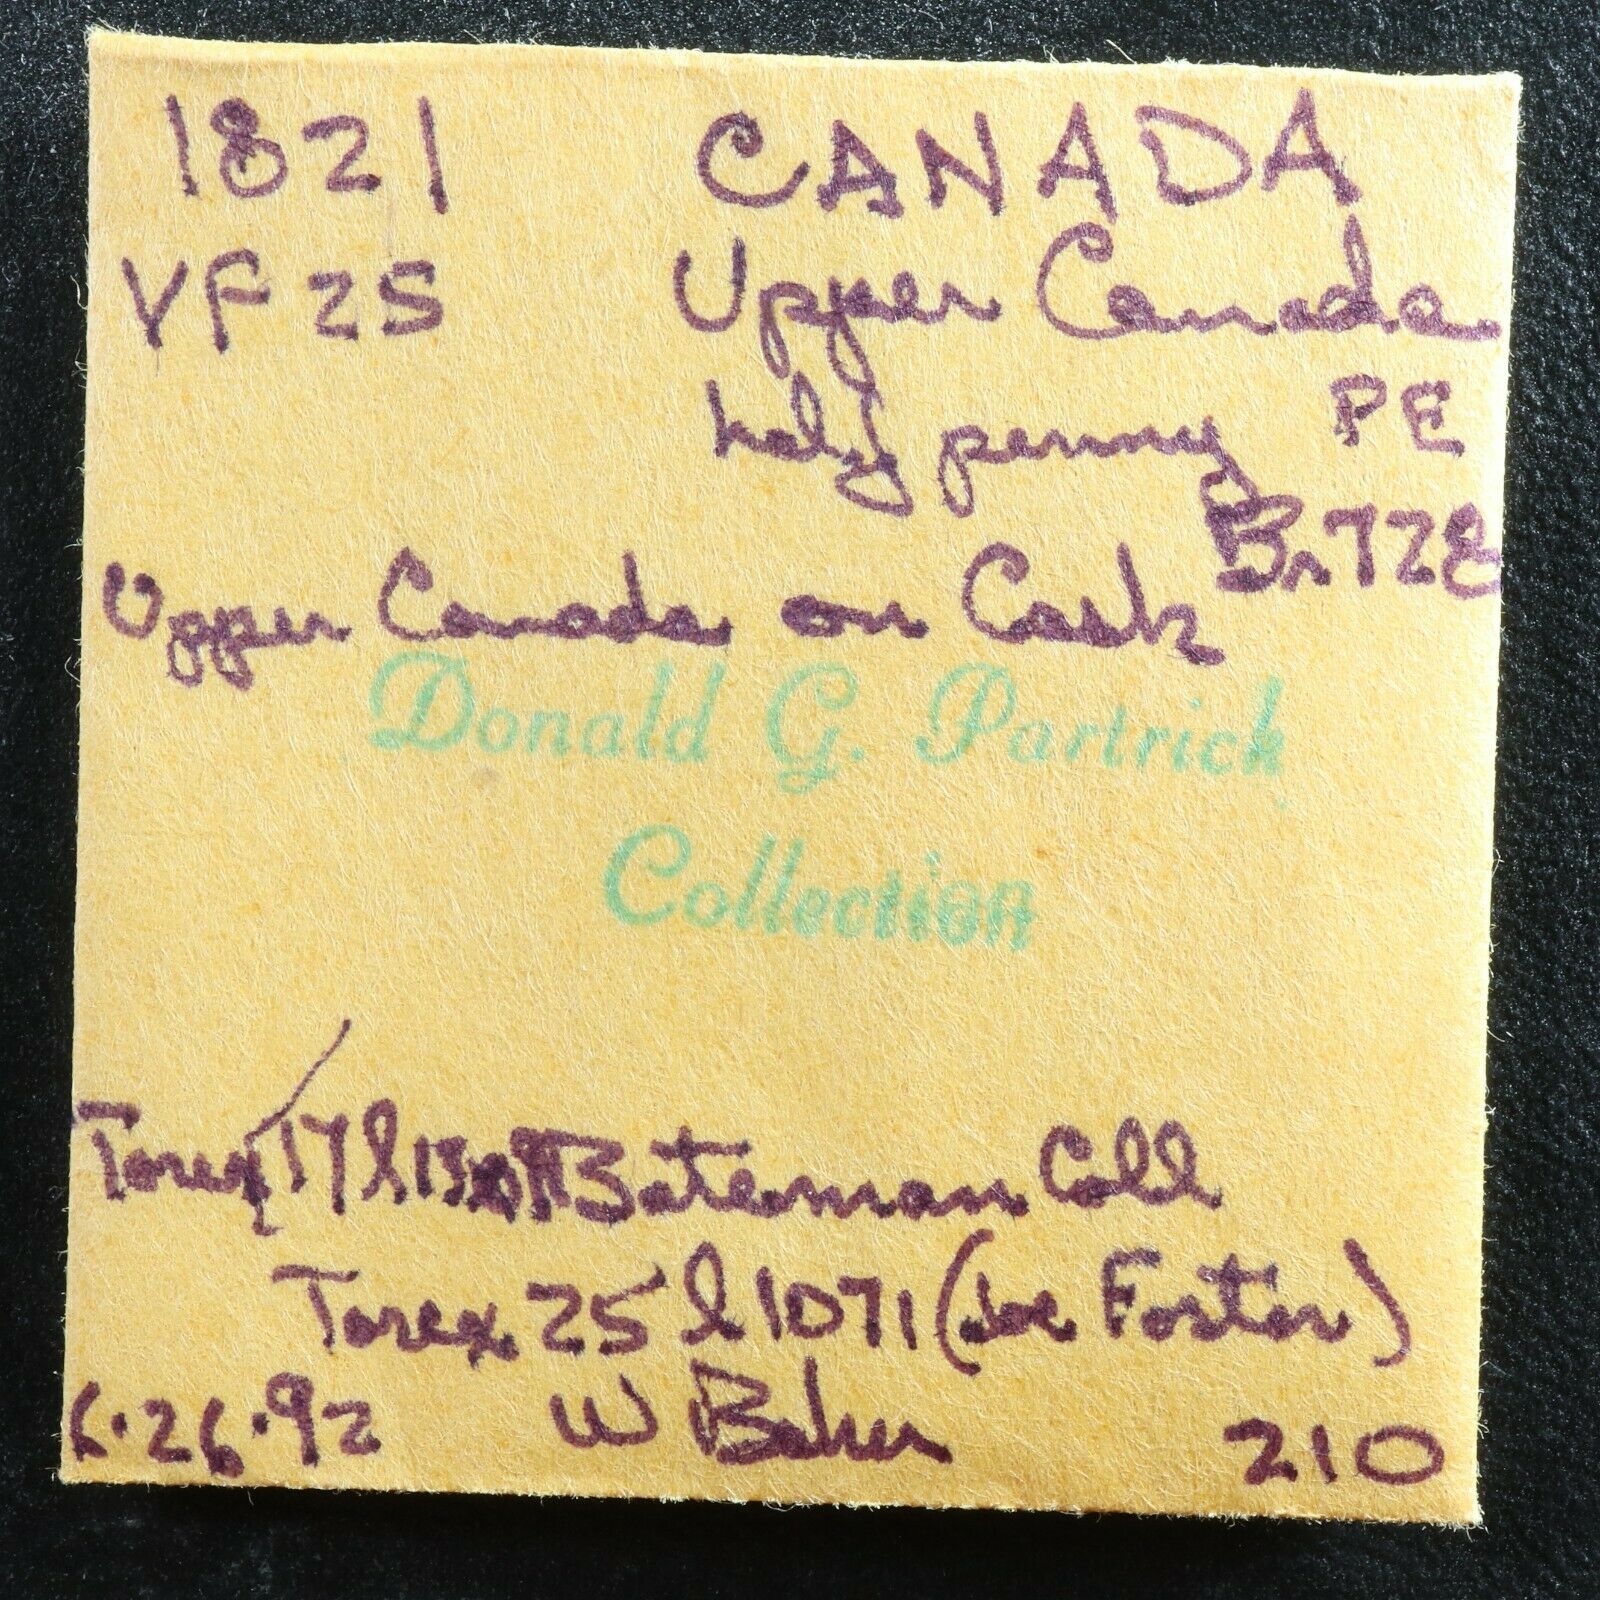 1821 CANADA
VF 25 Upper Canada
half penny PE
Br 728
Upper Canada on Cask
Donald G. Partrick
Collection
Torex 17 l Bateman Coll
Torex 25 l 1071 (Joe Foster)
6.26.92 W Baker 210